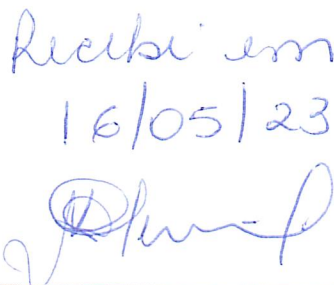 Recebi em
16/05/23